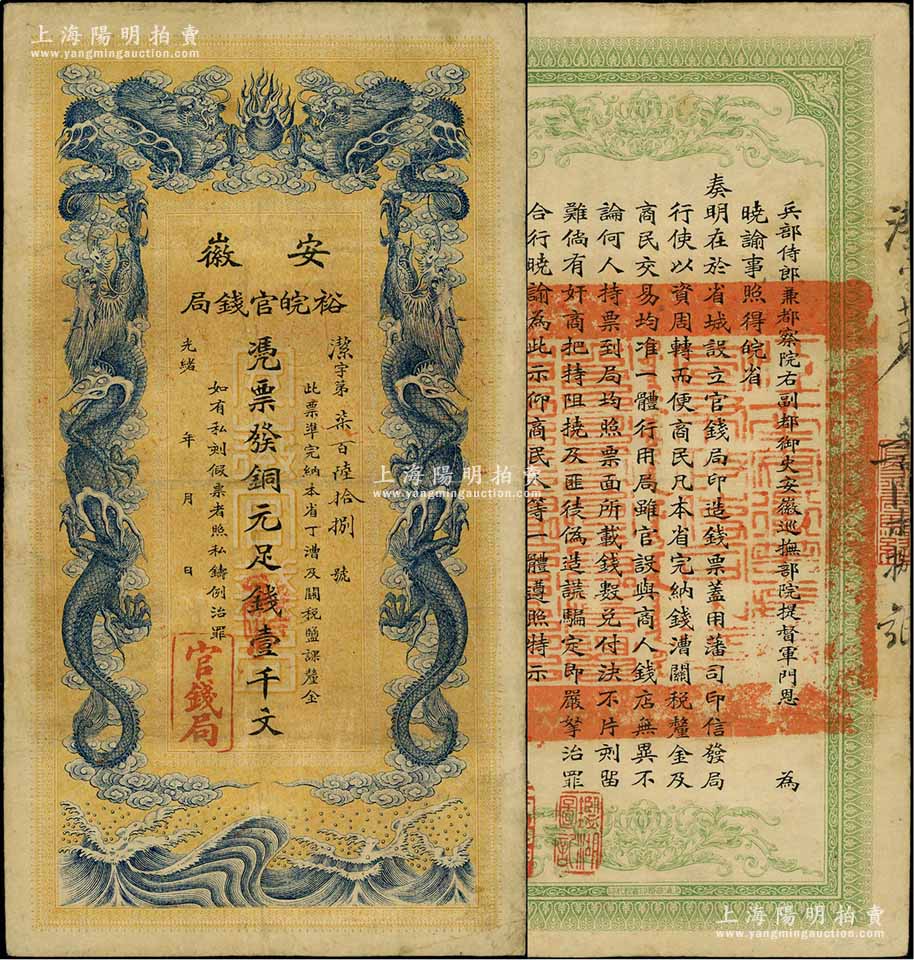 上海陽明拍賣
www.yangmingauction.com
安徽
裕皖官錢局
潔字第柒百陸拾捌號
此票準完納本省丁漕及關稅鹽課釐金
憑票發銅元足錢壹千文
如有私刻假票者照私鑄例治罪
光緒 年 月 日
官錢局
上海陽明拍賣
www.yangmingauction.com
兵部侍郎兼都察院右副都御史安徽巡撫部院提督軍門恩 為
曉諭事照得皖省
奏明在於省城設立官錢局印造錢票蓋用藩司印信發局
行使以資周轉而便商民凡本省完納錢漕關稅釐金及
商民交易均准一體行用局雖官設與商人錢店無異不
論何人持票到局均照票面所載錢數兌付決不片刻留
難倘有奸商把持阻撓及匪徒偽造謊騙定即嚴拏治罪
合行曉諭為此示仰商民人等一體遵照特示
蕪湖
圖記
上海陽明拍賣
www.yangmingauction.com